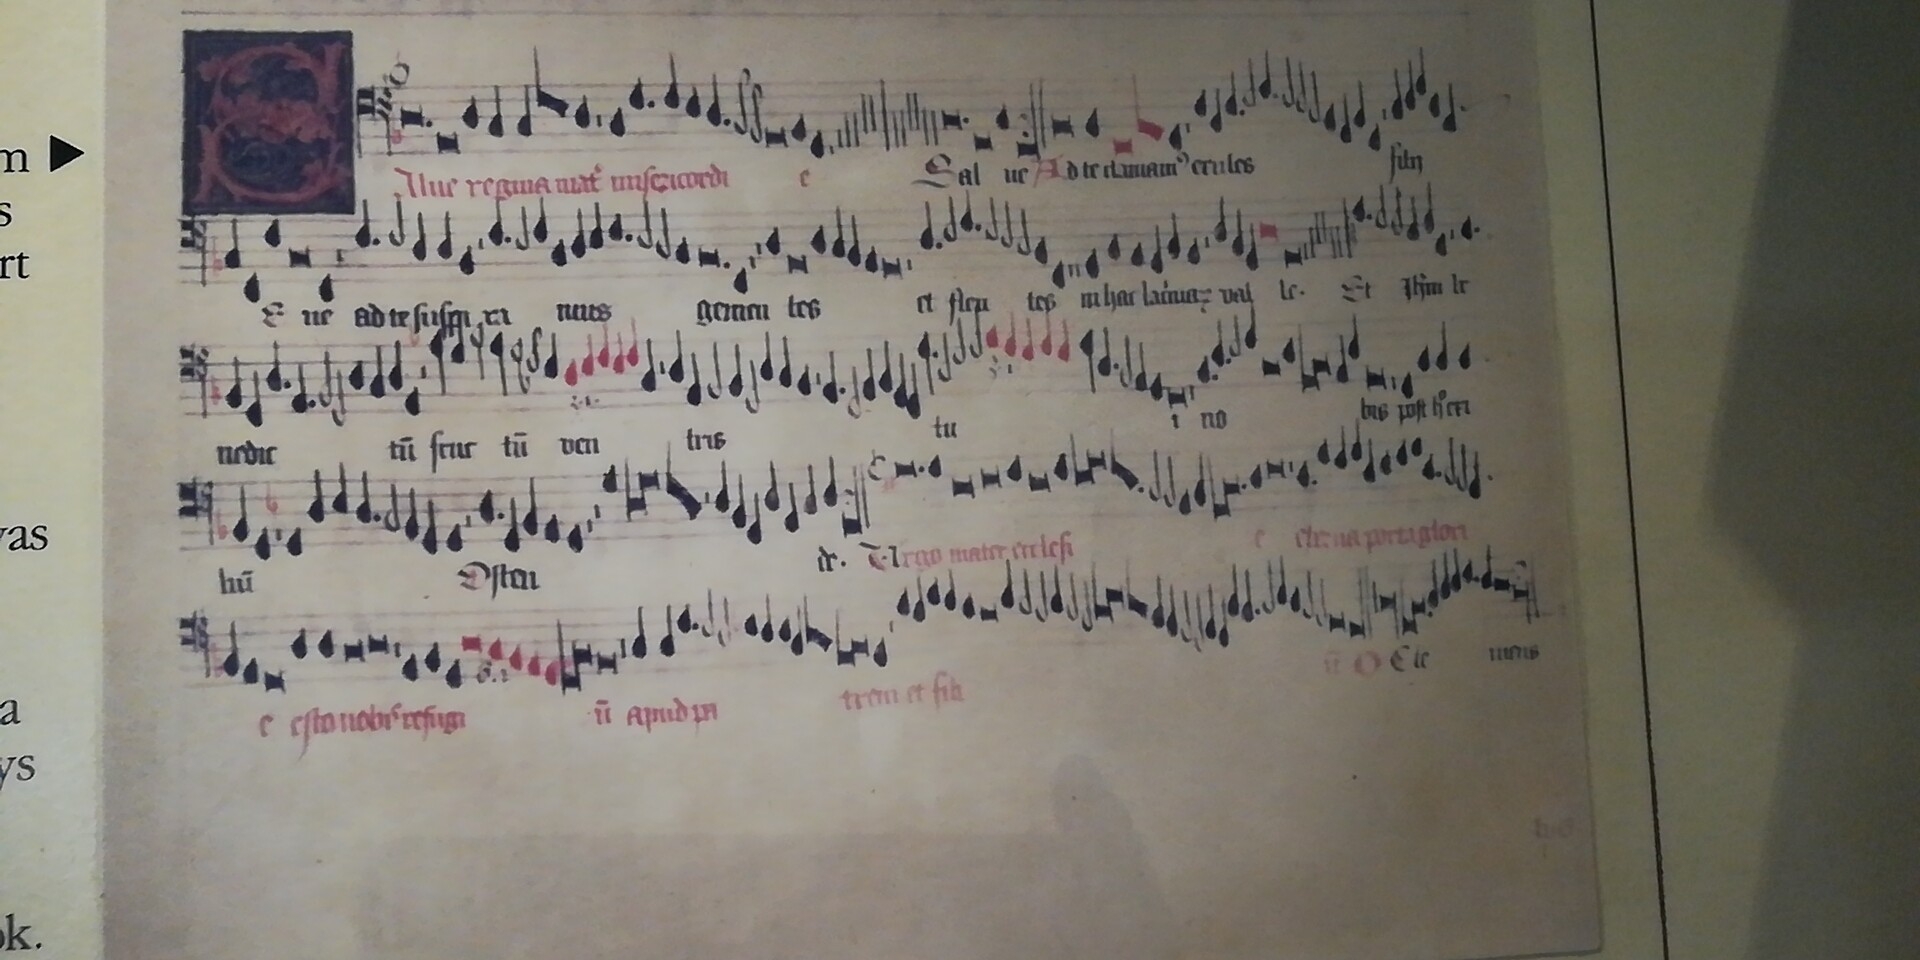 m ▶
s
rt
Salue regina mat᷒ misericordi e Sal ue Ad te clamam᷒ exules filij
E ue ad te suspi ra mus gemen tes et flen tes in hac lacrimaꝝ val le. Et Jhm be
vas
nedic tū fruc tū ven tris tu i no bis post h
hū Osten de. Virgo mater ecclesi e eterna porta glori
a
ys
e esto nobis refugi ū apud pa trem et fili ū O Cle mens
ok.